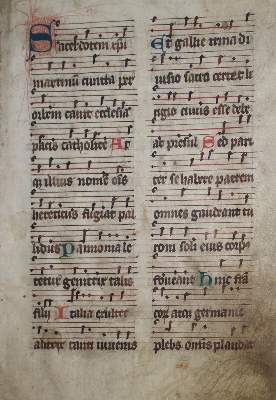 Sacerdotem xpi
martinu cuncta per
orbem canit ecclesia
pacis catholice At
q illius nome ois
hereticus fugiat pal
lidus Pannonia le
tetur genitrix talis
filij Italia exultet
alitrix tanti iuvenis
Et gallie trina di
uisio sacro certet li
tigio cuius esse debe
at presul Sed pari
ter se habere patrem
omnes gaudeant tu
roni soli eius corpus
foueant Huic fran
cor atq germanie
plebs omis plaudat